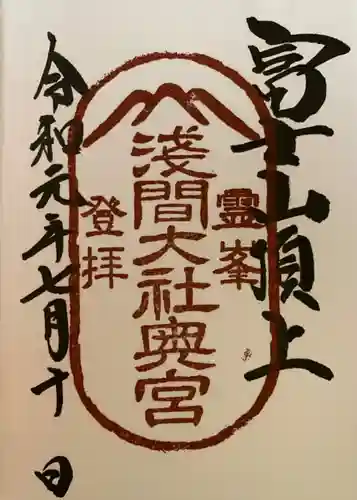 富士山頂上
霊峯
淺間大社奥宮
登拝
令和元年七月十日